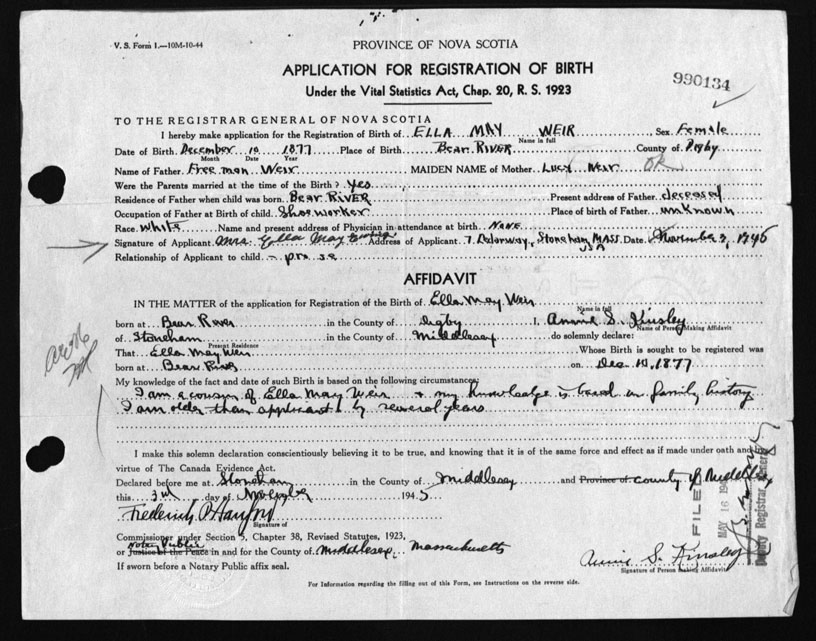 V. S. Form 1.—10M-10-44
PROVINCE OF NOVA SCOTIA
APPLICATION FOR REGISTRATION OF BIRTH
Under the Vital Statistics Act, Chap. 20, R. S. 1923
990134
TO THE REGISTRAR GENERAL OF NOVA SCOTIA
I hereby make application for the Registration of Birth of ELLA MAY WEIR Sex Female
Name in full
Date of Birth December 10 1877 Place of Birth Bear River County of Digby
Month Date Year
Name of Father Freeman Weir MAIDEN NAME of Mother Lucy Weir OK
Were the Parents married at the time of the Birth? yes
Residence of Father when child was born Bear River Present address of Father deceased
Occupation of Father at Birth of child Shoeworker Place of birth of Father unknown
Race White Name and present address of Physician in attendance at birth None
Signature of Applicant Mrs. Ella May Address of Applicant 7 Stoneham, MASS. USA Date November 3, 1945
Relationship of Applicant to child - per se
AFFIDAVIT
IN THE MATTER of the application for Registration of the Birth of Ella May Weir
Name in full
born at Bear River in the County of Digby I, Annie S. Kinsley
Name of Person Making Affidavit
of Stoneham in the County of Middlesex do solemnly declare:
Present Residence
That Ella May Weir Whose Birth is sought to be registered was
born at Bear River on Dec. 10, 1877
My knowledge of the fact and date of such Birth is based on the following circumstances:
I am a cousin of Ella May Weir + my knowledge is based on family history
I am older than applicant by several years
I make this solemn declaration conscientiously believing it to be true, and knowing that it is of the same force and effect as if made under oath and by
virtue of The Canada Evidence Act.
Declared before me at Stoneham in the County of Middlesex and Province of County of Middlesex
this 3rd day of November 1945
Frederick P. Hanford
Signature of
Commissioner under Section 5, Chapter 38, Revised Statutes, 1923,
Notary Public
or Justice of the Peace in and for the County of Middlesex, Massachusetts
If sworn before a Notary Public affix seal.
Annie S. Kinsley
Signature of Person Making Affidavit
FILED
MAY 16 194
Deputy Registrar General
For Information regarding the filling out of this Form, see Instructions on the reverse side.